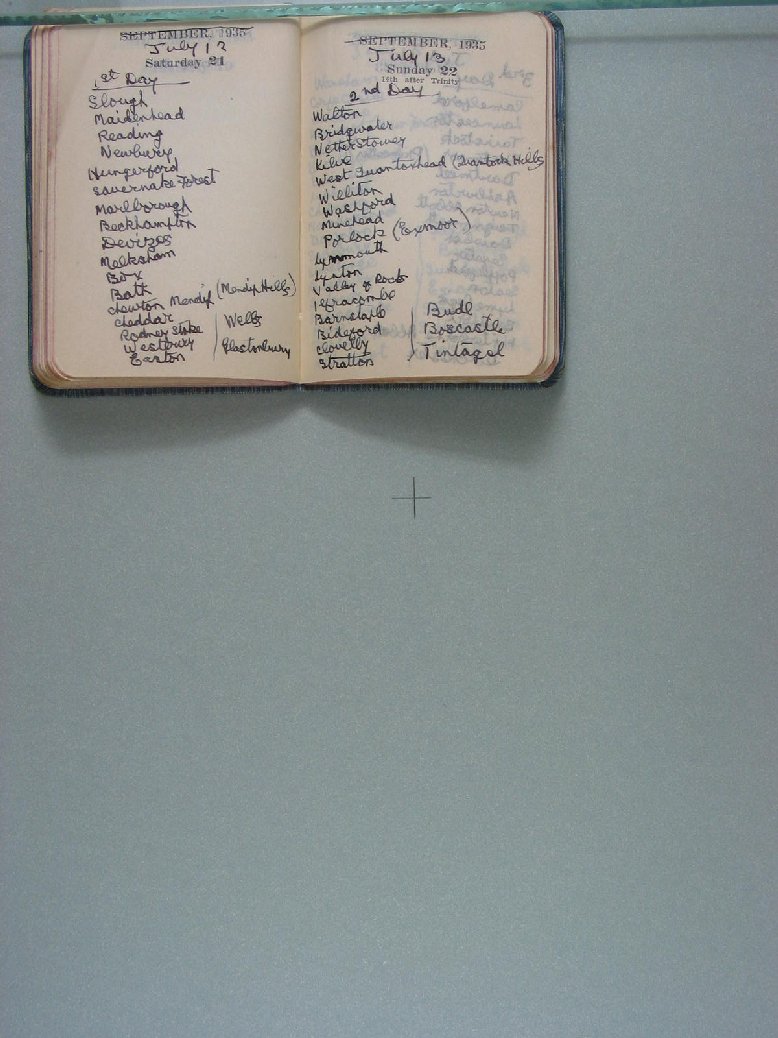 SEPTEMBER, 1935
July 12
Saturday 21
1st Day
Slough
Maidenhead
Reading
Newbury
Hungerford
Savernake Forest
Marlborough
Beckhampton
Devizes
Melksham
Box
Bath
Chewton Mendip (Mendip Hills)
Cheddar
Rodney Stoke
Westbury
Easton
Wells
Glastonbury
SEPTEMBER, 1935
July 13
Sunday 22
14th after Trinity
2nd Day
Walton
Bridgwater
Nether Stowey
Kilve
West Quantoxhead (Quantock Hills)
Williton
Washford
Minehead
Porlock (Exmoor)
Lynmouth
Lynton
Valley of Rocks
Ilfracombe
Barnstaple
Bideford
Clovelly
Stratton
Bude
Boscastle
Tintagel